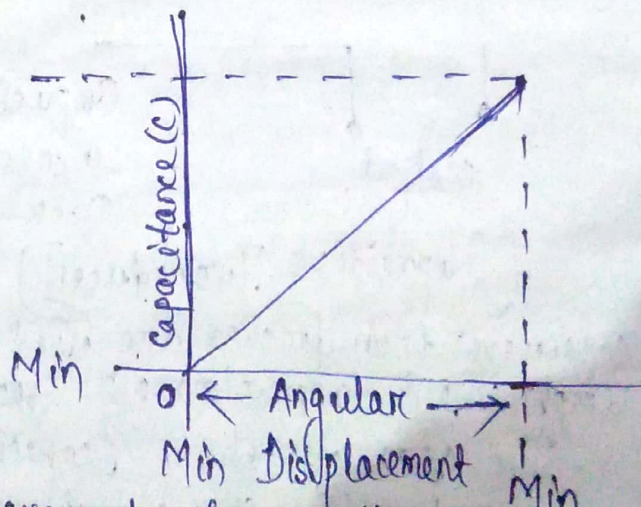 Capacitance (C)
Min
0 ← Angular →
Min Displacement
Min